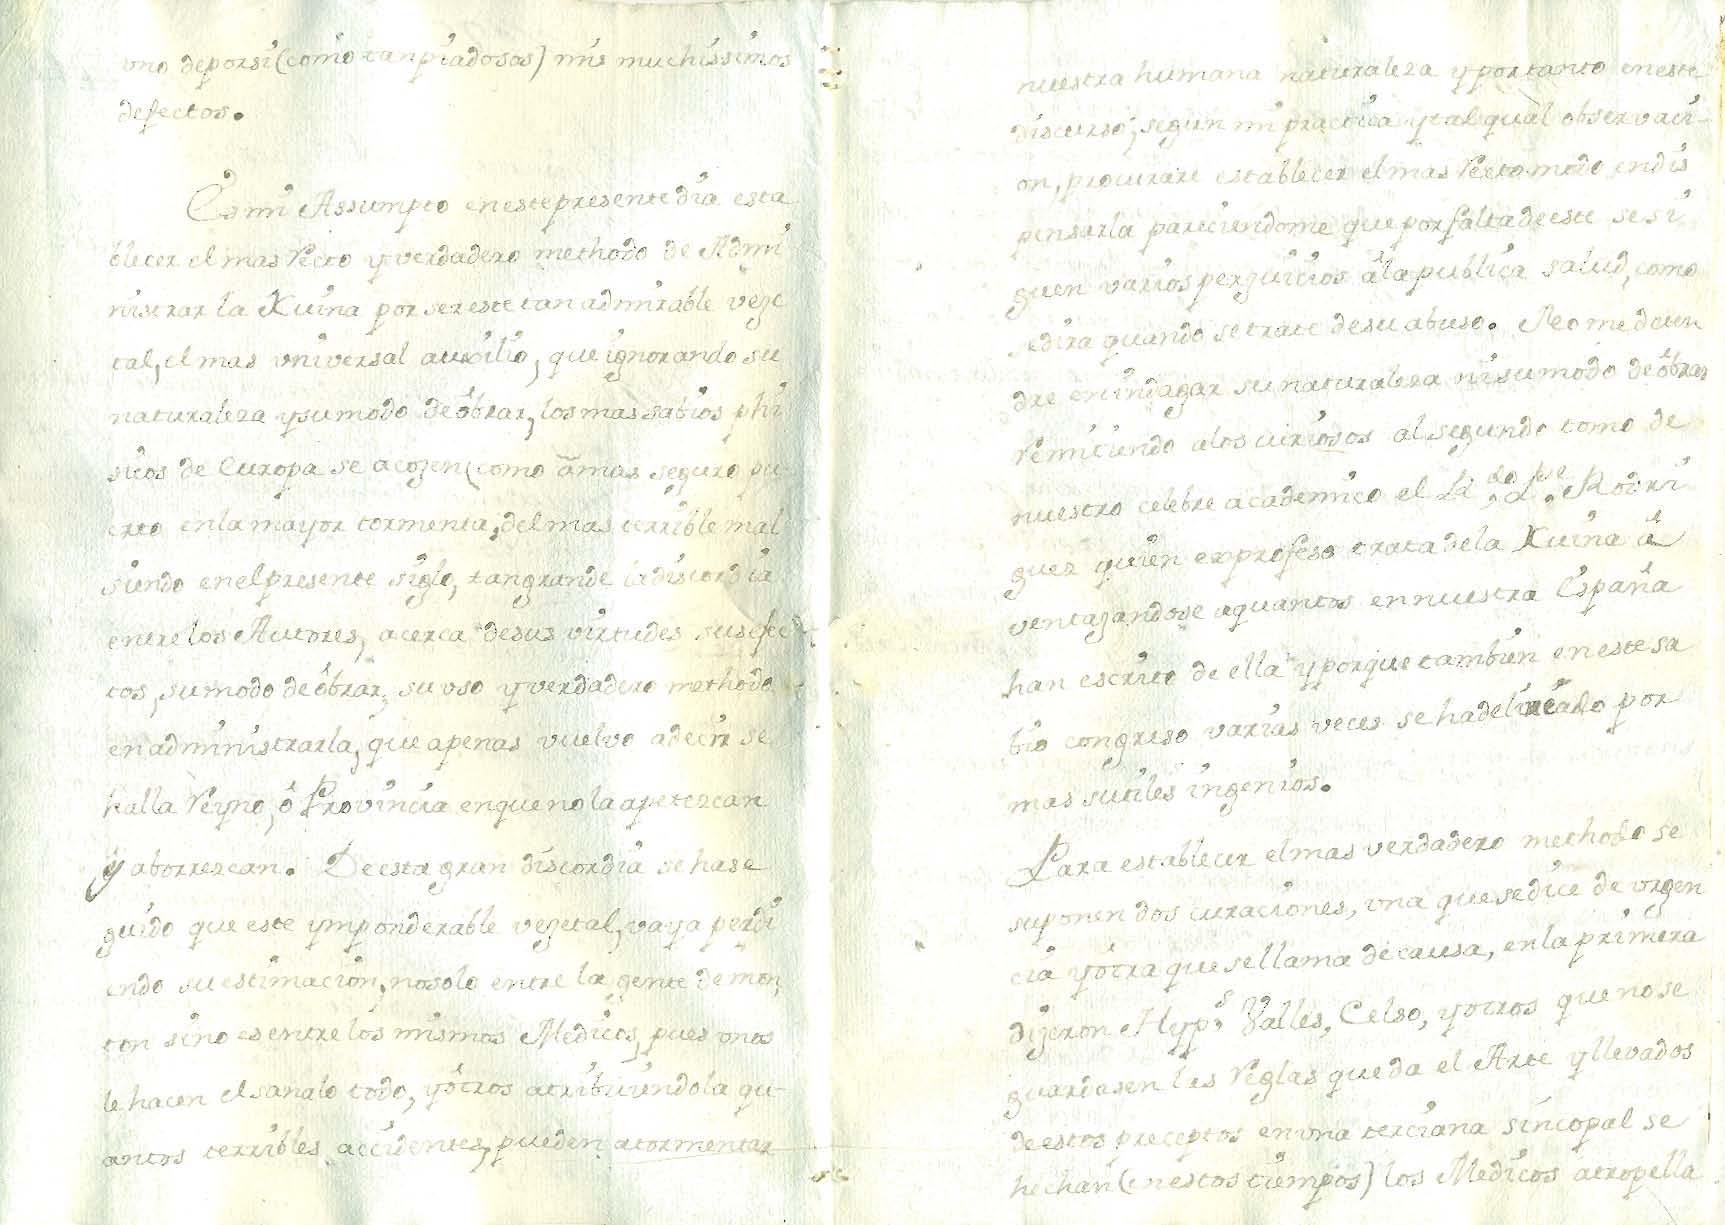 vno deporsi (como tan piadosos) mis muchissimos
defectos.
Es mi Assumpto eneste presente dia esta
blecer el mas recto y verdadero methodo de Admi
nistrar la Xuina por ser este tan admirable veje
tal, el mas vniversal auxilio, que ignorando su
naturaleza y su modo de óbrar, los mas sabios phi
sicos de Europa se acojen (como á mas seguro pu-
erto en la mayor tormenta, del mas terrible mal
siendo en el presente siglo, tan grande la discordia
entre los Autores, acerca de sus virtudes sus efec
tos, su modo de óbrar, su vso y verdadero methodo
en administrarla, que apenas vuelvo a decir se
halla reyno, ó Provincia en que no la apetezcan
y aborrezcan. De esta gran discordia se ha se
guido que este ymponderable vejetal, vaya perdi
endo su estimacion, no solo entre la gente de mon
ton sino es entre los mismos Medicos, pues vnos
le hacen el sanalo todo, y ótros atribuiendola qu-
antos terribles accidentes, pueden atormentar
nuestra humana naturaleza y por tanto en este
discurso, segun mi practica y tal qual observaci-
on, procurare establecer el mas recto modo en dis
pensarla pareciendome que por falta de este se si
guen varios perguicios á la publica salud, como
se dira quando se trate de su abuso. No me deten
dre en indagar su naturaleza ni su modo de óbrar
remitiendo a los curiosos al segundo tomo de
nuestro celebre academico el R.do P.e Rodri
guez quien ex profeso trata de la Xuina á
ventajandose a quantos en nuestra España
han escrito de ella y porque tambien en este sa
bio congreso varias veces se ha delineado por
mas sutiles ingenios.
Para establecer el mas verdadero methodo se
suponen dos curaciones, vna que se dice de vrgen
cia y ótra que se llama de causa, en la primera
dijeron Hyp.s Valles, Celso, y otros que no se
guardasen las reglas que da el Arte y llevados
de estos preceptos en vna terciana sincopal se
hechan (en estos tiempos) los Medicos atropella